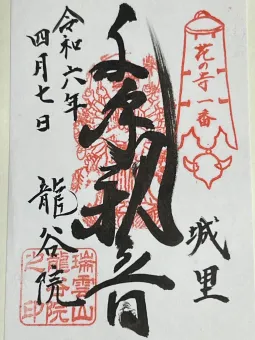 花の寺一番
城里
観音
令和六年
四月七日
龍谷院
瑞雲山
龍谷院
之印